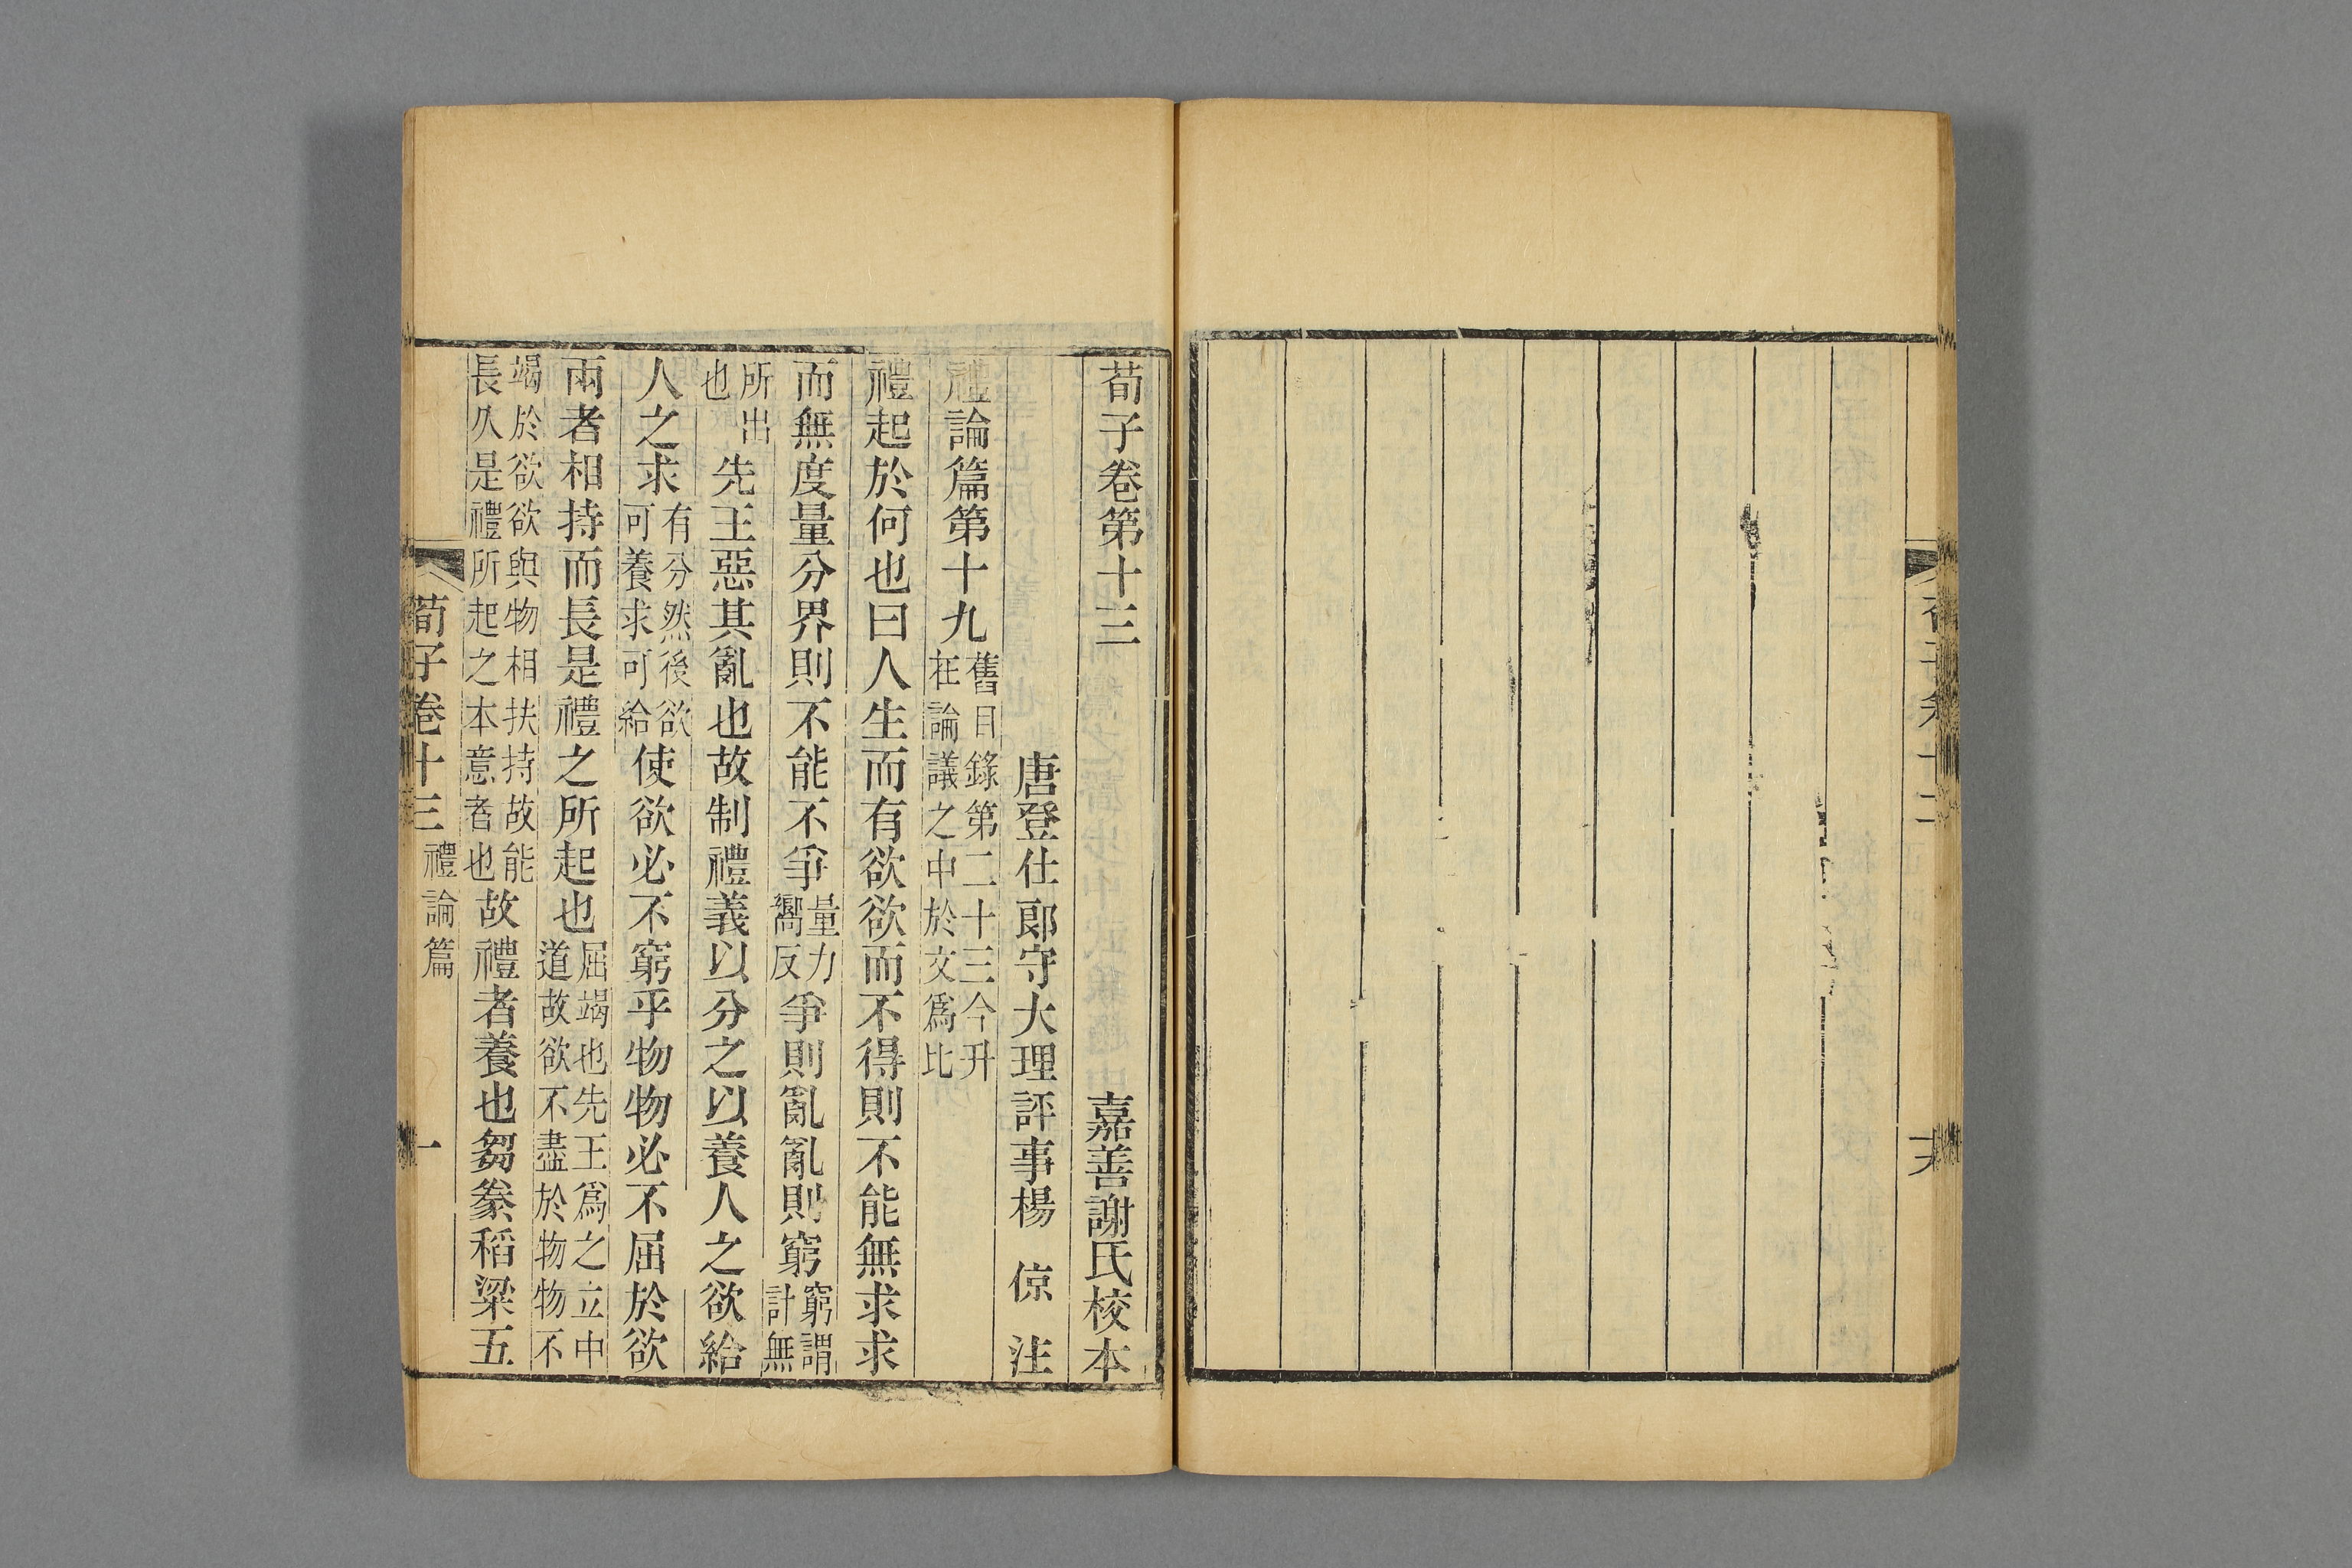 荀子卷十二
荀子卷第十三　嘉善謝氏校本
唐登仕郎守大理評事楊　倞　注
禮論篇第十九舊目錄第二十三今升在論議之中於文爲比
禮起於何也曰人生而有欲欲而不得則不能無求求
而無度量分界則不能不爭量力嚮反爭則亂亂則窮窮謂計無
所出也先王惡其亂也故制禮義以分之以養人之欲給
人之求有分然後欲可養求可給使欲必不窮乎物物必不屈於欲
兩者相持而長是禮之所起也屈竭也先王爲之立中道故欲不盡於物物不
竭於欲欲與物相扶持故能長久是禮所起之本意者也故禮者養也芻豢稻粱五
荀子卷十三　禮論篇　一